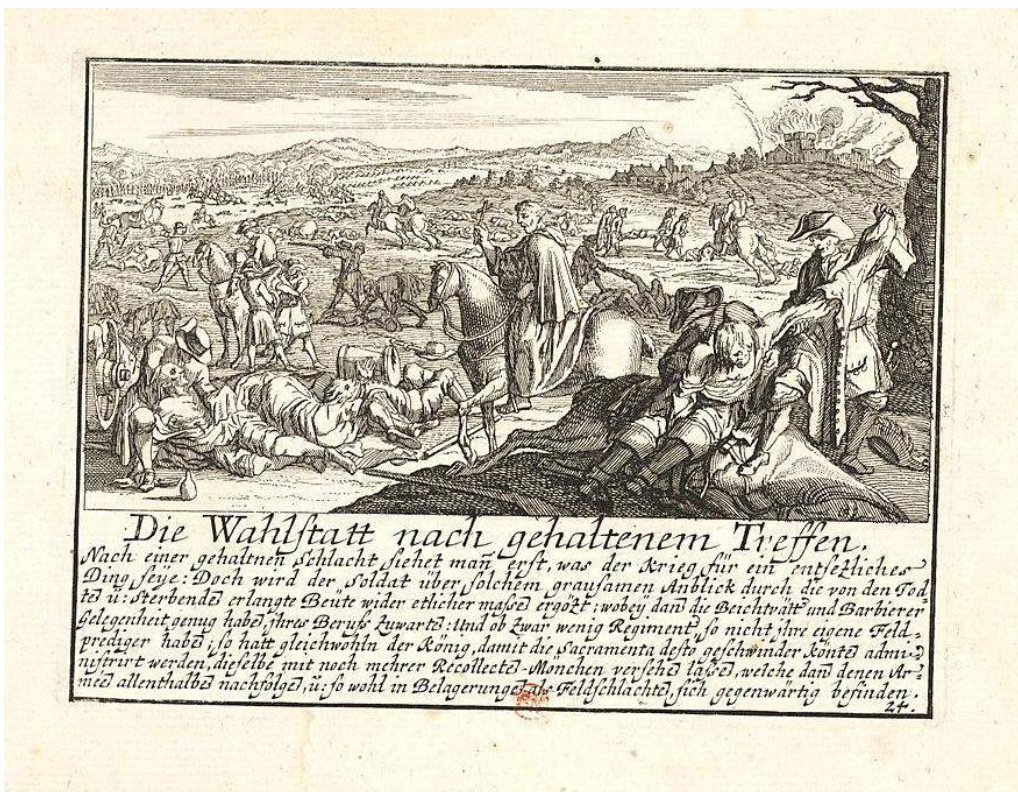 Die Wahlſtatt nach gehaltenem Treffen.
Nach einer gehaltnen Schlacht ſiehet man̄ erſt, was der Krieg für ein entſetzliches
Ding ſeye: Doch wird der Soldat über ſolchem grauſamen Anblick durch die von den Tod-
tē ū: Sterbendē erlangte Beüte wider etlicher maſsē ergötzt; wobey dan̄ die Beichtvätt' und Barbierer
Gelegenheit genug habē, jhres Berufs zuwartē: Und ob zwar wenig Regiment', ſo nicht jhre eigene Feld-
prediger habē; ſo hatt gleichwohln der König, damit die Sacramenta deſto geſchwinder kontē admi-
niſtrirt werden, dieſelbe mit noch mehrer Recollectē-Mönchen verſehē laſſē, welche dan̄ denen Ar-
meē allenthalbē nachfolgē, ū: ſo wohl in Belagerungē als Feldſchlachtē, ſich gegenwärtig befinden.
24.